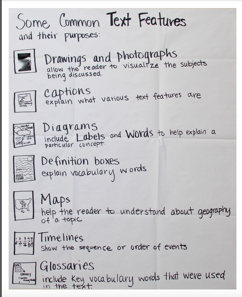 Some Common Text Features
and their purposes:
Drawings and photographs
allow the reader to visualize the subjects
being discussed
Captions
explain what various text features are
Diagrams
include Labels and Words to help explain a
particular concept
Definition boxes
explain vocabulary words
Maps
help the reader to understand about geography
of a topic
Timelines
Show the sequence or order of events
Glossaries
include key vocabulary words that were used
in the text